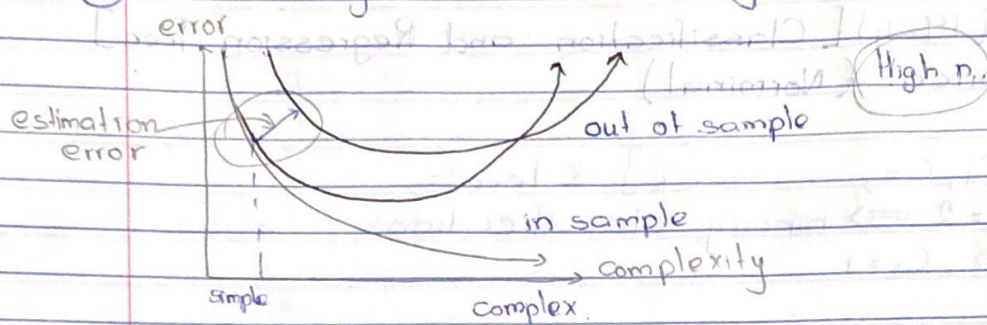 error
High n..
estimation
error
out of sample
in sample
complexity
simple
complex.